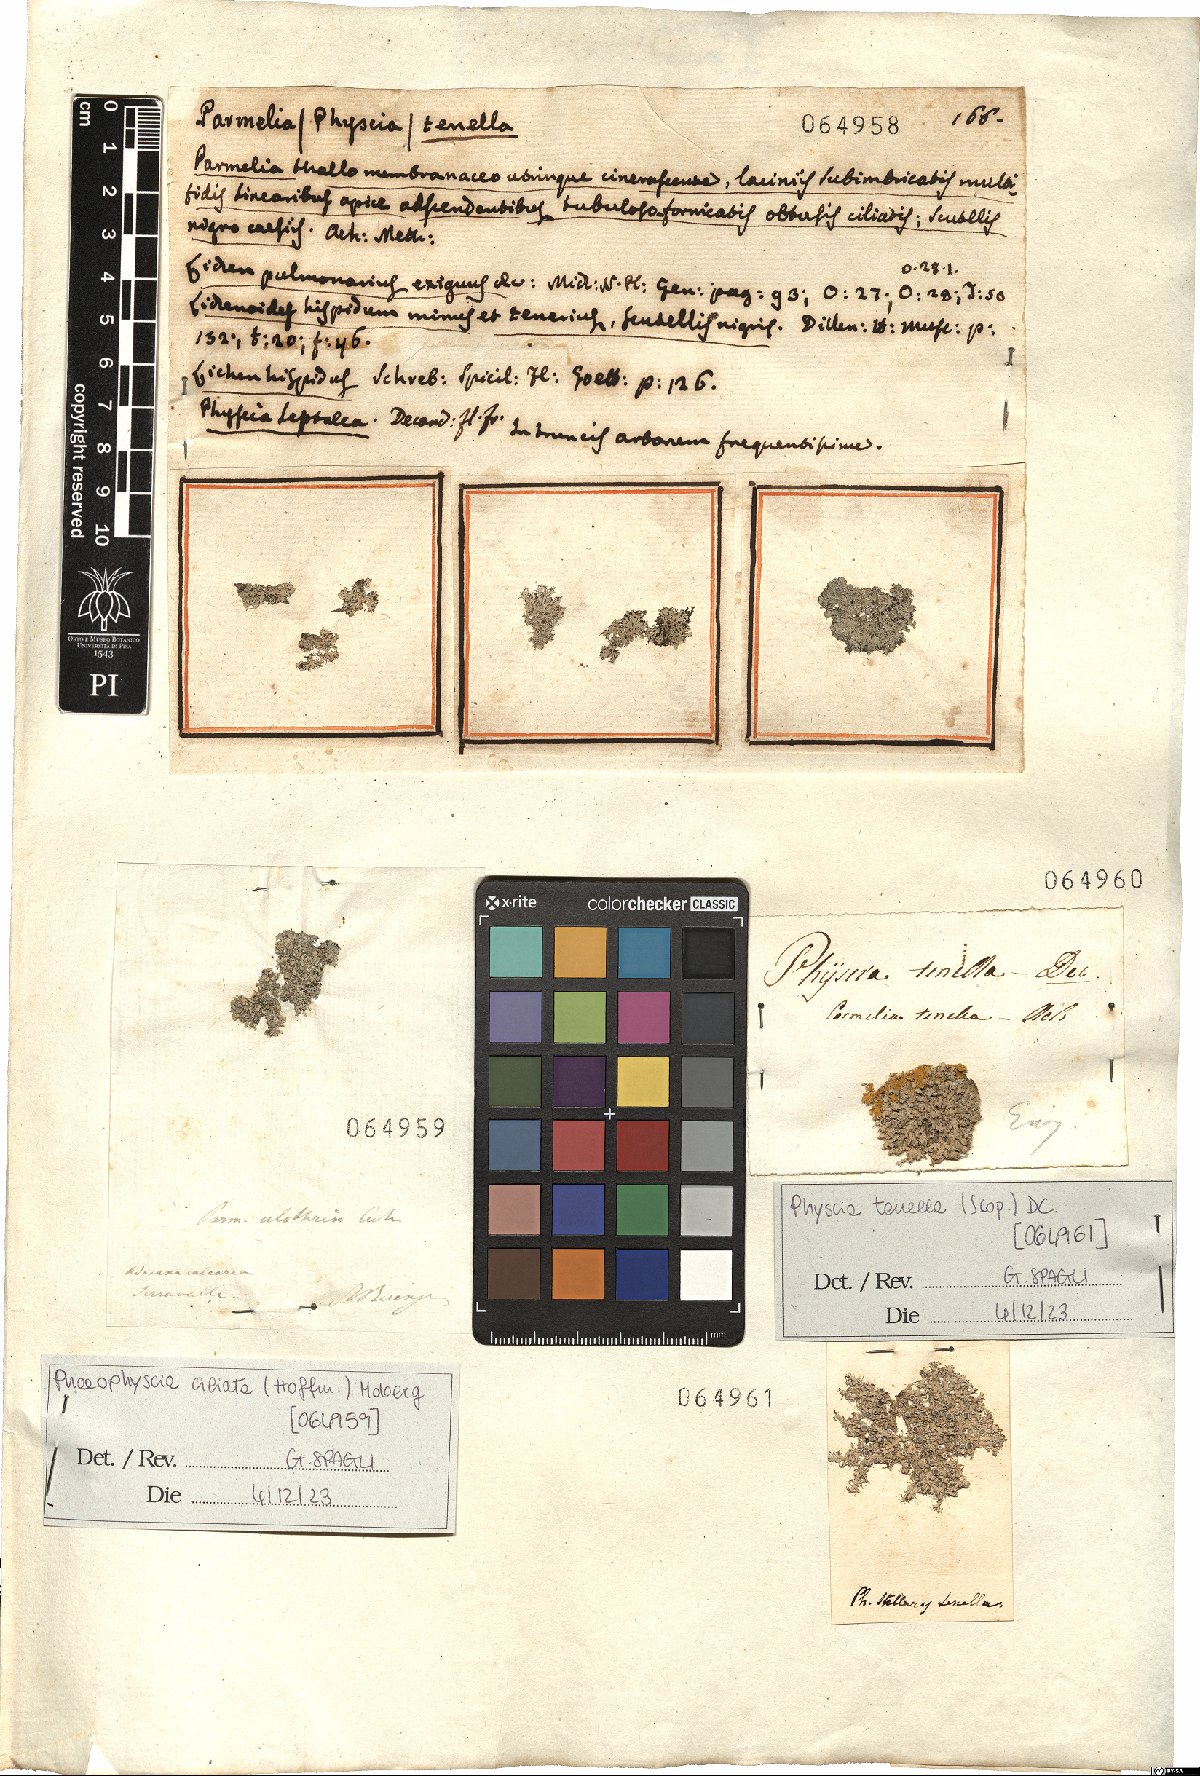 Parmelia / Physcia / tenella
064958
166.
Parmelia thallo membranaceo utrinque cinerascente, laciniis subimbricatis multi-
fidis linearibus apice adscendentibus tubuloso fornicatis obtusis ciliatis; scutellis
nigro caesiis. Ach: Meth:
0.28.1.
Lichen pulmonarius exiguus &c: Mich: N. Pl: Gen: pag: 93; O: 27; O: 28; T: 50
Lichenoides hispidum minus et tenerius, scutellis nigris. Dillen: H: Musc: p:
132; t: 20; f: 46.
Lichen hispidus Schreb: Spicil: Fl: p: 126.
Physcia Leptalea. Decand: fl. fr. In truncis arborum frequentissime.
cm
0
1
2
3
4
5
6
7
8
9
10
copyright reserved
Orto e Museo Botanico
Università di Pisa
1543
PI
064960
x-rite colorchecker CLASSIC
Physcia tenella - Dec.
Parmelia tenella - Ach
064959
Parm. ulothrix Ach
Serravalle
Physcia tenella (Scop.) DC.
[064961]
Det. / Rev. G. SPAGLI
Die 4/12/23
mm
Phaeophyscia ciliata (Hoffm.) Moberg
[064959]
Det. / Rev. G. SPAGLI
Die 4/12/23
064961
Ph. stellaris tenella